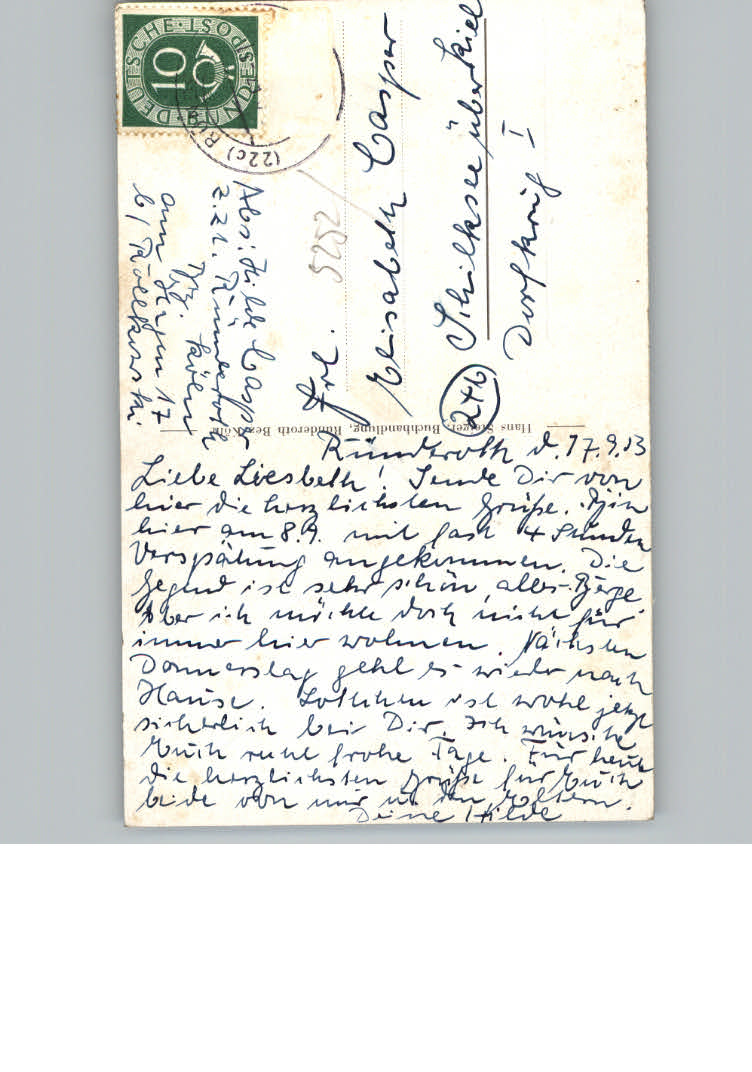 DEUTSCHE BUNDESPOST
10
(22c)
Abs: Hilde Casper
z. Zt. Ründeroth
Bez. Köln
am 17
b/
5252
Frl.
Elisabeth Casper
(24b) Schilksee über Kiel
Dorfkrug I
Hans Steiger, Buchhandlung, Ründeroth Bez. Köln
Ründeroth d. 17.9.53
Liebe Liesbeth! Sende Dir von
hier die herzlichsten Grüße. Bin
hier am 8.9. mit fast 4 Stunden
Verspätung angekommen. Die
Gegend ist sehr schön, alles Berge
Aber ich möchte doch nicht für
immer hier wohnen. Nächsten
Donnerstag geht es wieder nach
Hause. ist wohl jetzt
sicherlich bei Dir. Ich wünsche
Euch recht frohe Tage. Für heute
die herzlichsten Grüße für Euch
beide von mir u. den Eltern.
Deine Hilde